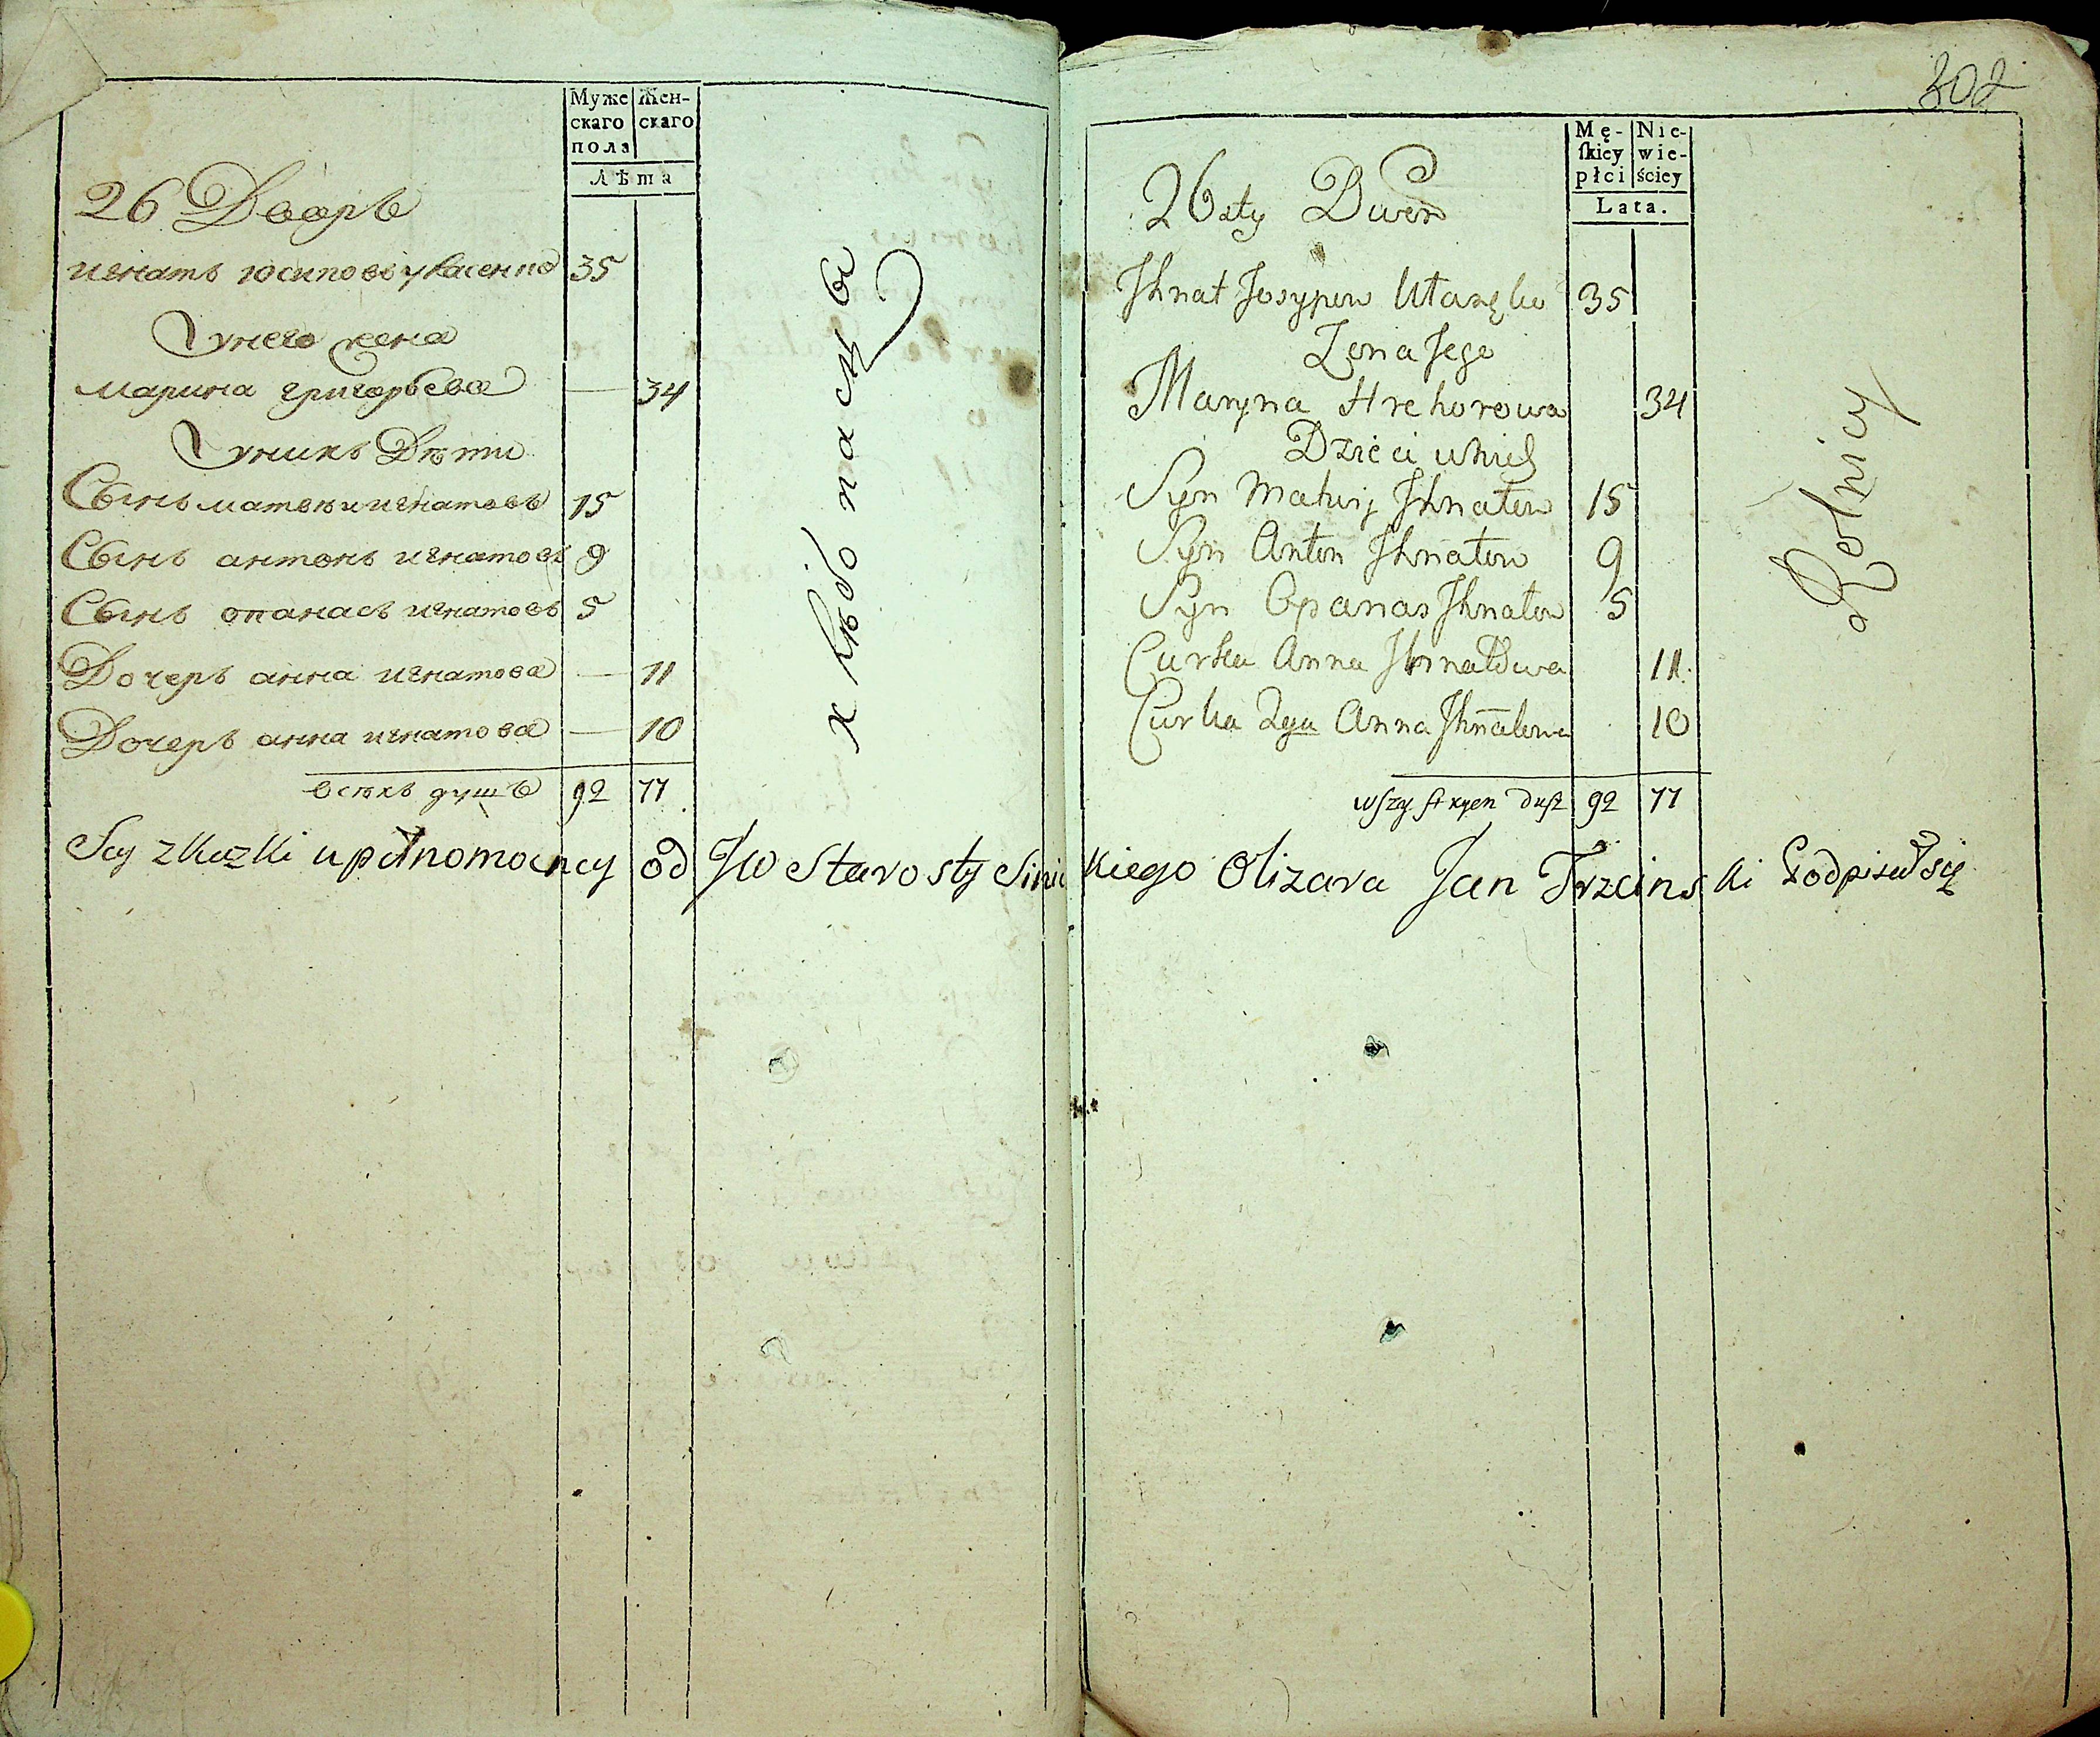 Муже
скаго
пола
Жен-
скаго
Лѣта
26 Дворъ
игнатъ юсиповъ 35
унего жена
марина григорьева — 34
унихъ Дѣти
Сынъ матвѣи игнатовъ 15
Сынъ антонъ игнатовъ 9
Сынъ опанасъ игнатовъ 5
Дочерь анна игнатова — 11
Дочерь анна игнатова — 10
всѣхъ душъ 92 77
хлѣбопашцы
202
Mę-
ſkiey
płci
Nie-
wie-
ściey
Lata.
26sty Dwor
Jhnat Josypow 35
Zona Jego
Maryna Hrehorowa 34
Dzieci u nich
Syn Matwij Jhnatow 15
Syn Anton Jhnatow 9
Syn Opanas Jhnatow 5
Curka Anna Jhnatowa 11.
Curka 2ga Anna Jhnatowa 10
wſzyſtkych duſz 92 77
Rolnicy
Sey zkazki upełnomocney od JW Starosty Olizara Jan Trzcinski Podpisał się